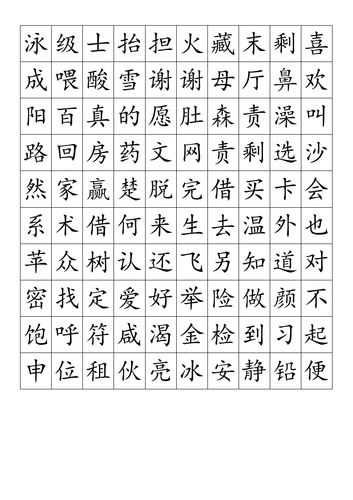 泳级士抬担火藏末剩喜
成喂酸雪谢谢母厅鼻欢
阳百真的愿肚森责澡叫
路回房药文网责剩选沙
然家赢楚脱完借买卡会
系术借何来生去温外也
苹众树认还飞另知道对
密找定爱好举险做颜不
饱呼符咸渴金检到习起
申位租伙亮冰安静铅便